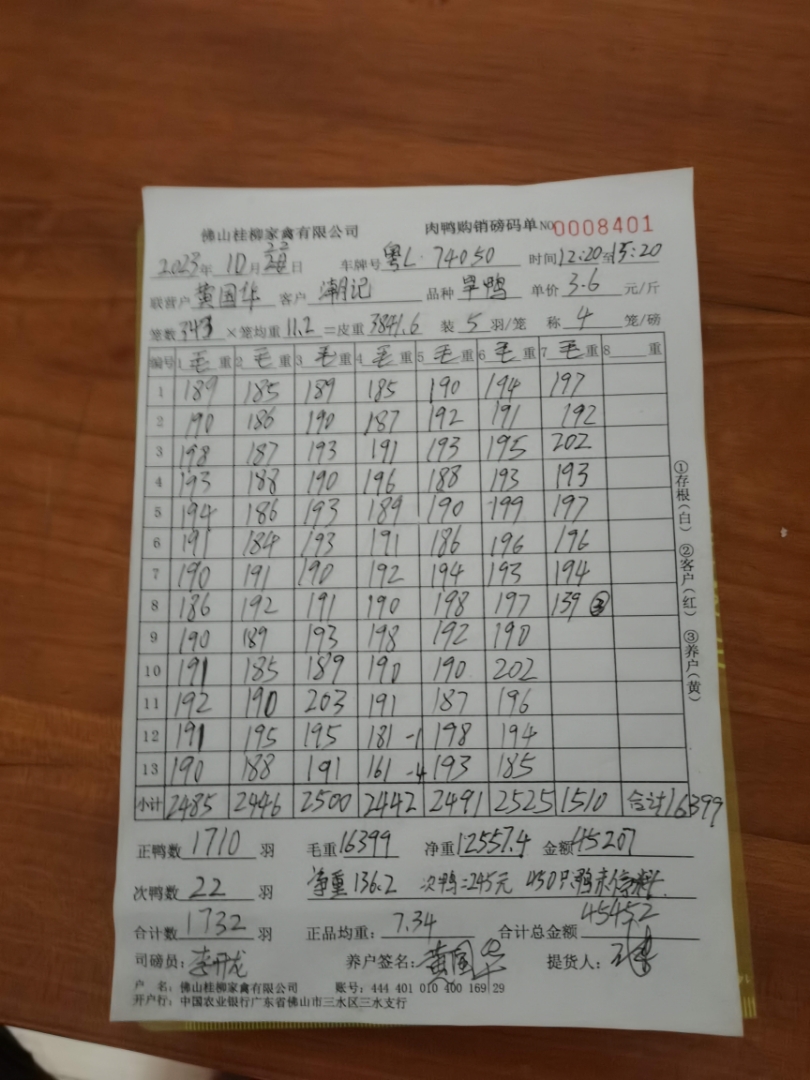 佛山桂柳家禽有限公司 肉鸭购销磅码单 NO 0008401
2023年 10月 22日 车牌号 粤L·74050 时间 12:20至15:20
联营户 黄国华 客户 潮记 品种 旱鸭 单价 3.6 元/斤
笼数 343 ×笼均重 11.2 =皮重 3841.6 装 5 羽/笼 称 4 笼/磅
编号 1 毛 重 2 毛 重 3 毛 重 4 毛 重 5 毛 重 6 毛 重 7 毛 重 8 重
1 189 185 189 185 190 194 197
2 190 186 190 187 192 191 192
3 198 187 193 191 193 195 202
4 193 188 190 196 188 193 193
5 194 186 193 189 190 199 197
6 191 184 193 191 186 196 196
7 190 191 190 192 194 193 194
8 186 192 191 190 198 197 139 ③
9 190 189 193 198 192 190
10 191 185 189 190 190 202
11 192 190 203 191 187 196
12 191 195 195 181 -1 198 194
13 190 188 191 161 -4 193 185
小计 2485 2446 2500 2442 2491 2525 1510 合计16399
①存根(白) ②客户(红) ③养户(黄)
正鸭数 1710 羽 毛重 16399 净重 12557.4 金额 45207
次鸭数 22 羽 净重 136.2 次鸭=245元 450只鸭未停料
合计数 1732 羽 正品均重: 7.34 合计总金额 45452
司磅员: 李开龙 养户签名: 黄国华 提货人:
户 名: 佛山桂柳家禽有限公司 账号: 444 401 010 400 169 29
开户行: 中国农业银行广东省佛山市三水区三水支行